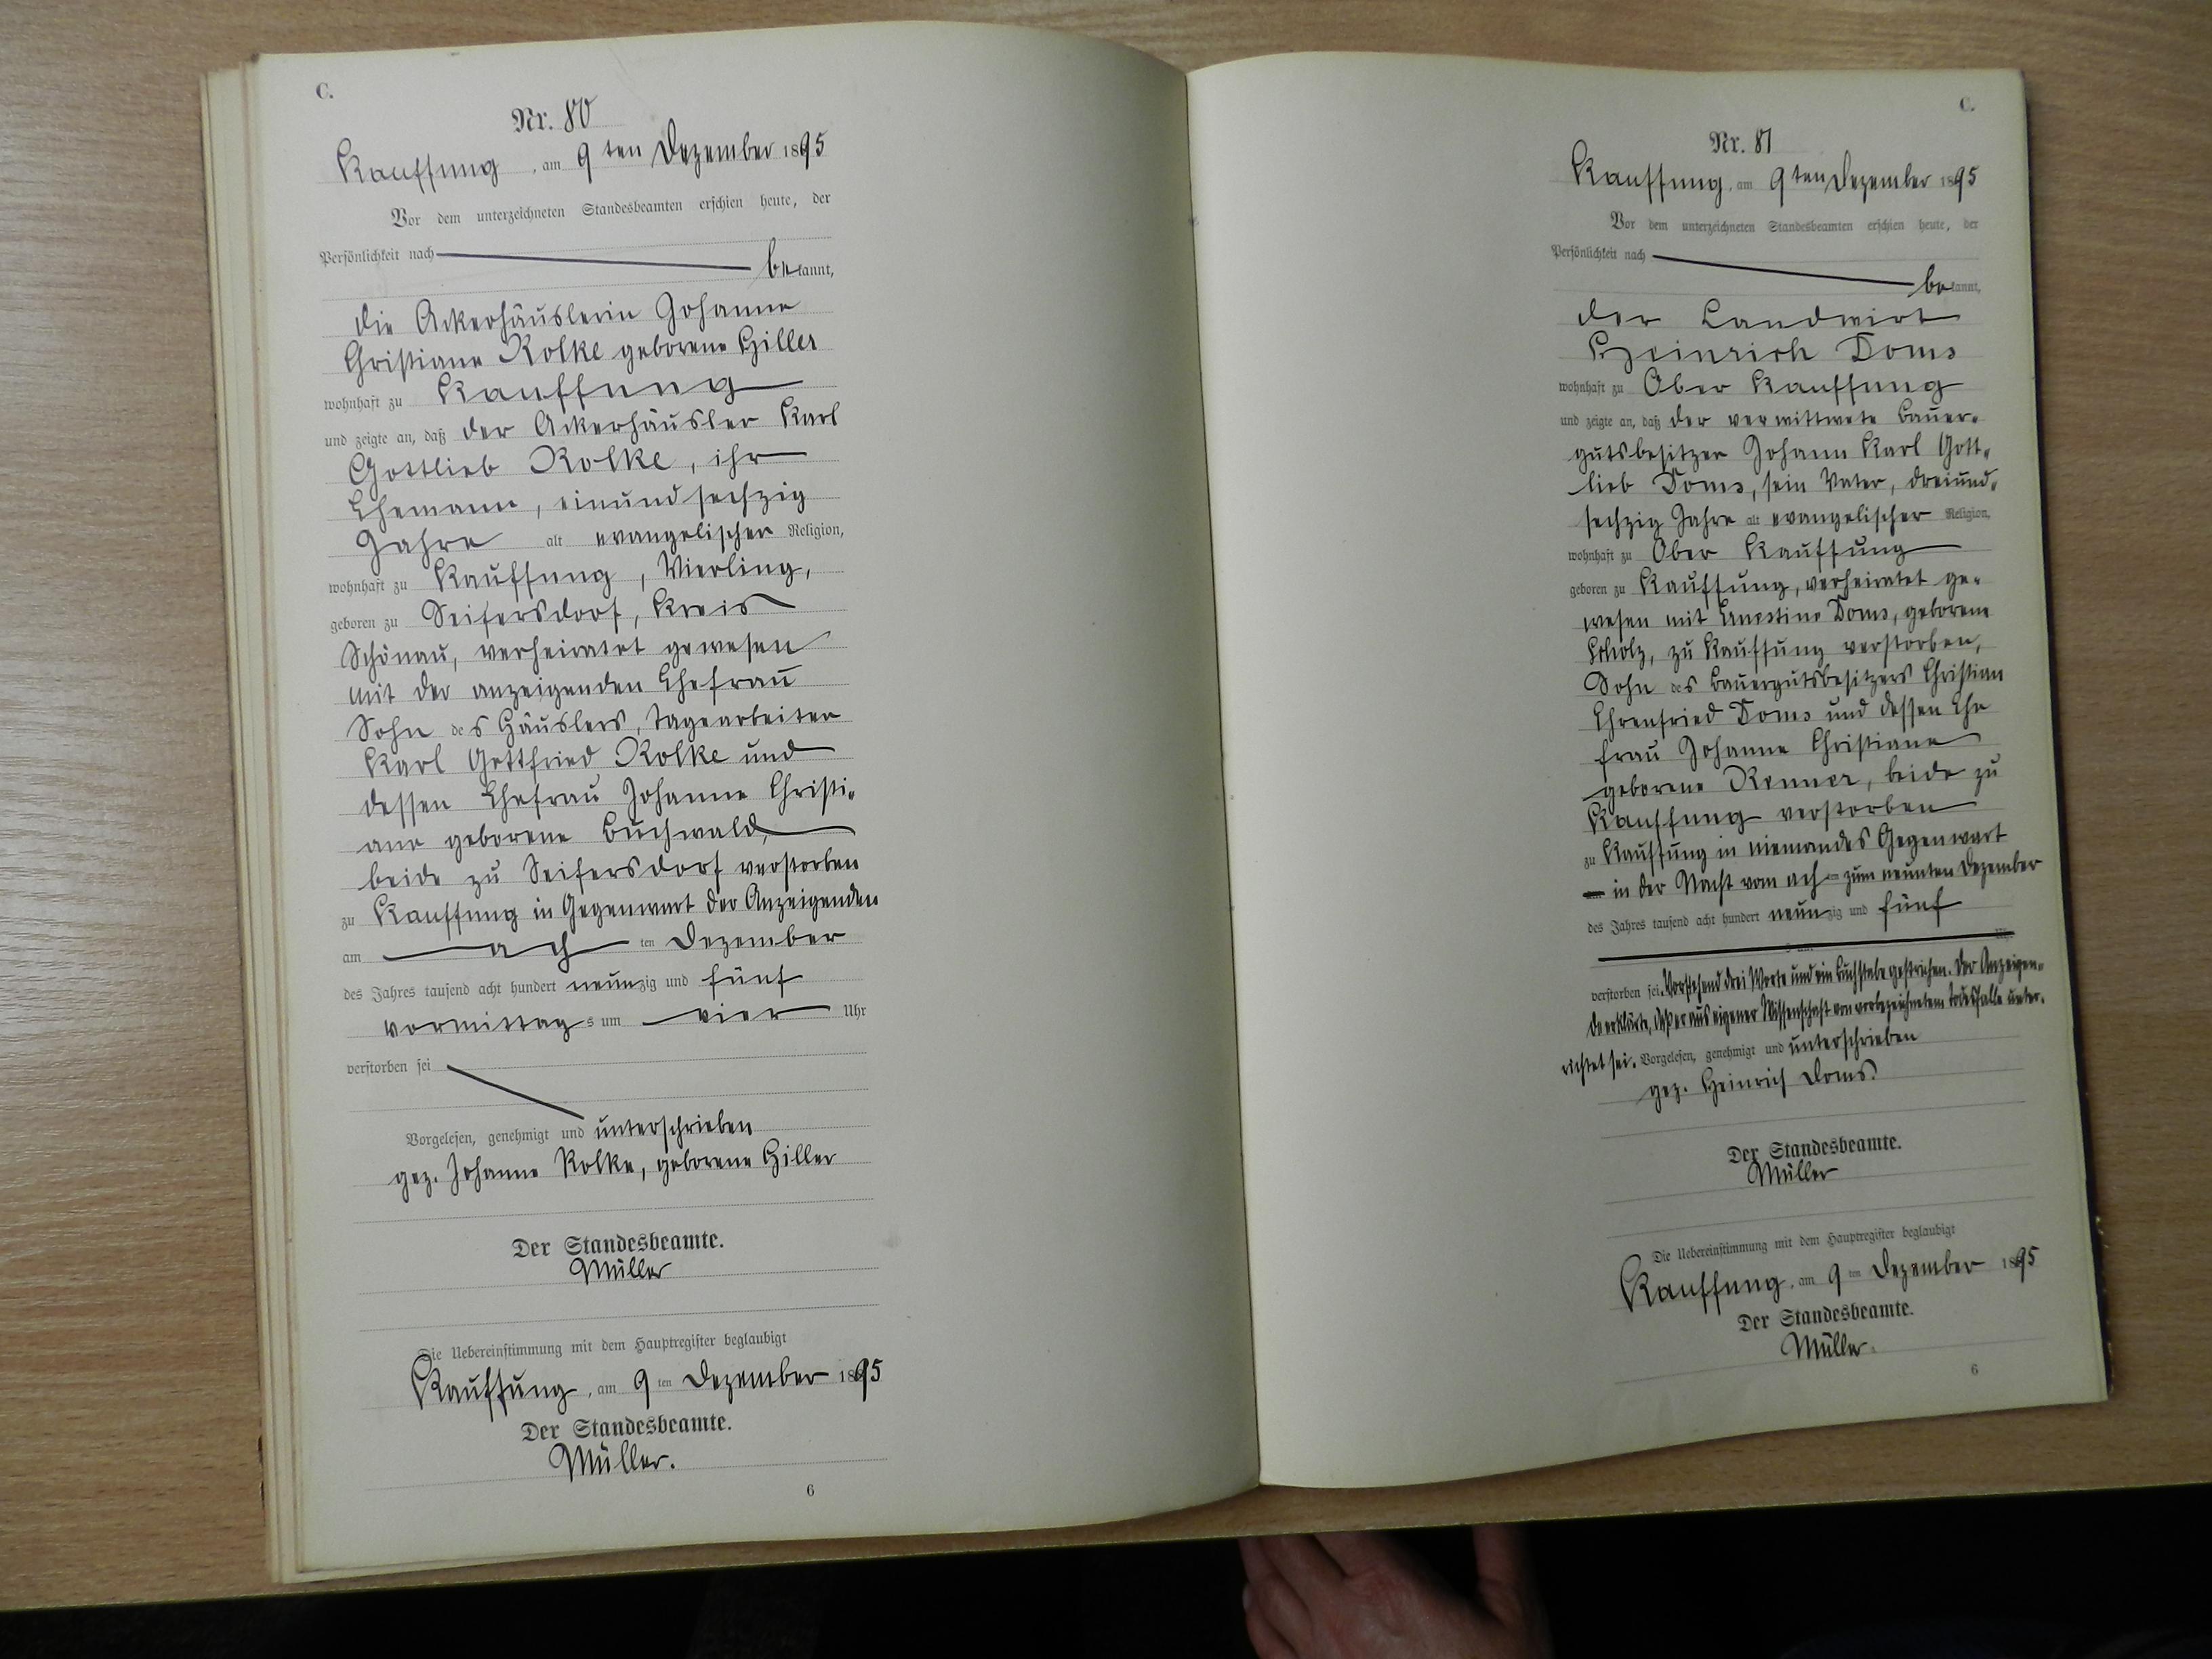 C.
Nr. 80
Kauffung, am 9ten Dezember 1895
Vor dem unterzeichneten Standesbeamten erschien heute, der
Persönlichkeit nach
bekannt,
die Ackerhäuslerin Johanne
Christiane Rolke geborene Hiller
wohnhaft zu Kauffung
und zeigte an, daß der Ackerhäusler Karl
Gottlieb Rolke, ihr
Ehemann, einundsechzig
Jahre alt evangelischer Religion,
wohnhaft zu Kauffung, Vierling,
geboren zu Seifersdorf, Kreis
Schönau, verheiratet gewesen
mit der anzeigenden Ehefrau
Sohn des Häuslers, Tagearbeiter
Karl Gottfried Rolke und
dessen Ehefrau Johanne Christi=
ane geborene Buchwald,
beide zu Seifersdorf verstorben
zu Kauffung in Gegenwart der Anzeigenden
am achten Dezember
des Jahres tausend acht hundert neunzig und fünf
vormittags um vier Uhr
verstorben sei
Vorgelesen, genehmigt und unterschrieben
gez. Johanne Rolke, geborene Hiller
Der Standesbeamte.
Müller
Die Uebereinstimmung mit dem Hauptregister beglaubigt
Kauffung, am 9ten Dezember 1895
Der Standesbeamte.
Müller.
6
C.
Nr. 81
Kauffung, am 9ten Dezember 1895
Vor dem unterzeichneten Standesbeamten erschien heute, der
Persönlichkeit nach
bekannt,
der Landwirt
Heinrich Doms
wohnhaft zu Ober Kauffung
und zeigte an, daß der verwittwete Bauer=
gutsbesitzer Johann Karl Gott=
lieb Doms, sein Vater, dreiund=
sechzig Jahre alt evangelischer Religion,
wohnhaft zu Ober Kauffung
geboren zu Kauffung, verheiratet ge=
wesen mit Ernestine Doms, geborene
zu Kauffung verstorben,
Sohn des Bauergutsbesitzers Christian
Ehrenfried Doms und dessen Ehe
frau Johanne Christiane
geborene Renner, beide zu
Kauffung verstorben
zu Kauffung in niemandes Gegenwart
in der Nacht vom ach= zum neunten Dezember
des Jahres tausend acht hundert neunzig und fünf
Uhr
verstorben sei. Vorstehend drei Worte und ein Buchstabe gestrichen. Der Anzeigen=
de erklärte, daß er aus eigener Wissenschaft von vorbezeichnetem Todesfalle unter=
richtet sei. Vorgelesen, genehmigt und unterschrieben
gez. Heinrich Doms.
Der Standesbeamte.
Müller
Die Uebereinstimmung mit dem Hauptregister beglaubigt
Kauffung, am 9ten Dezember 1895
Der Standesbeamte.
Müller.
6